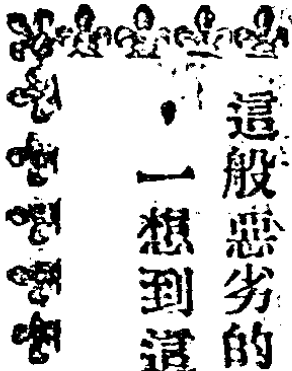 這般惡劣的
一想到這